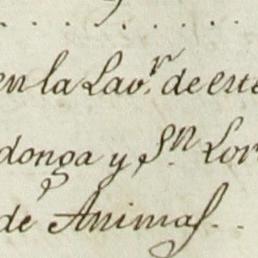 en la Lav.r de este
donga y S.n Lor
de Animas..